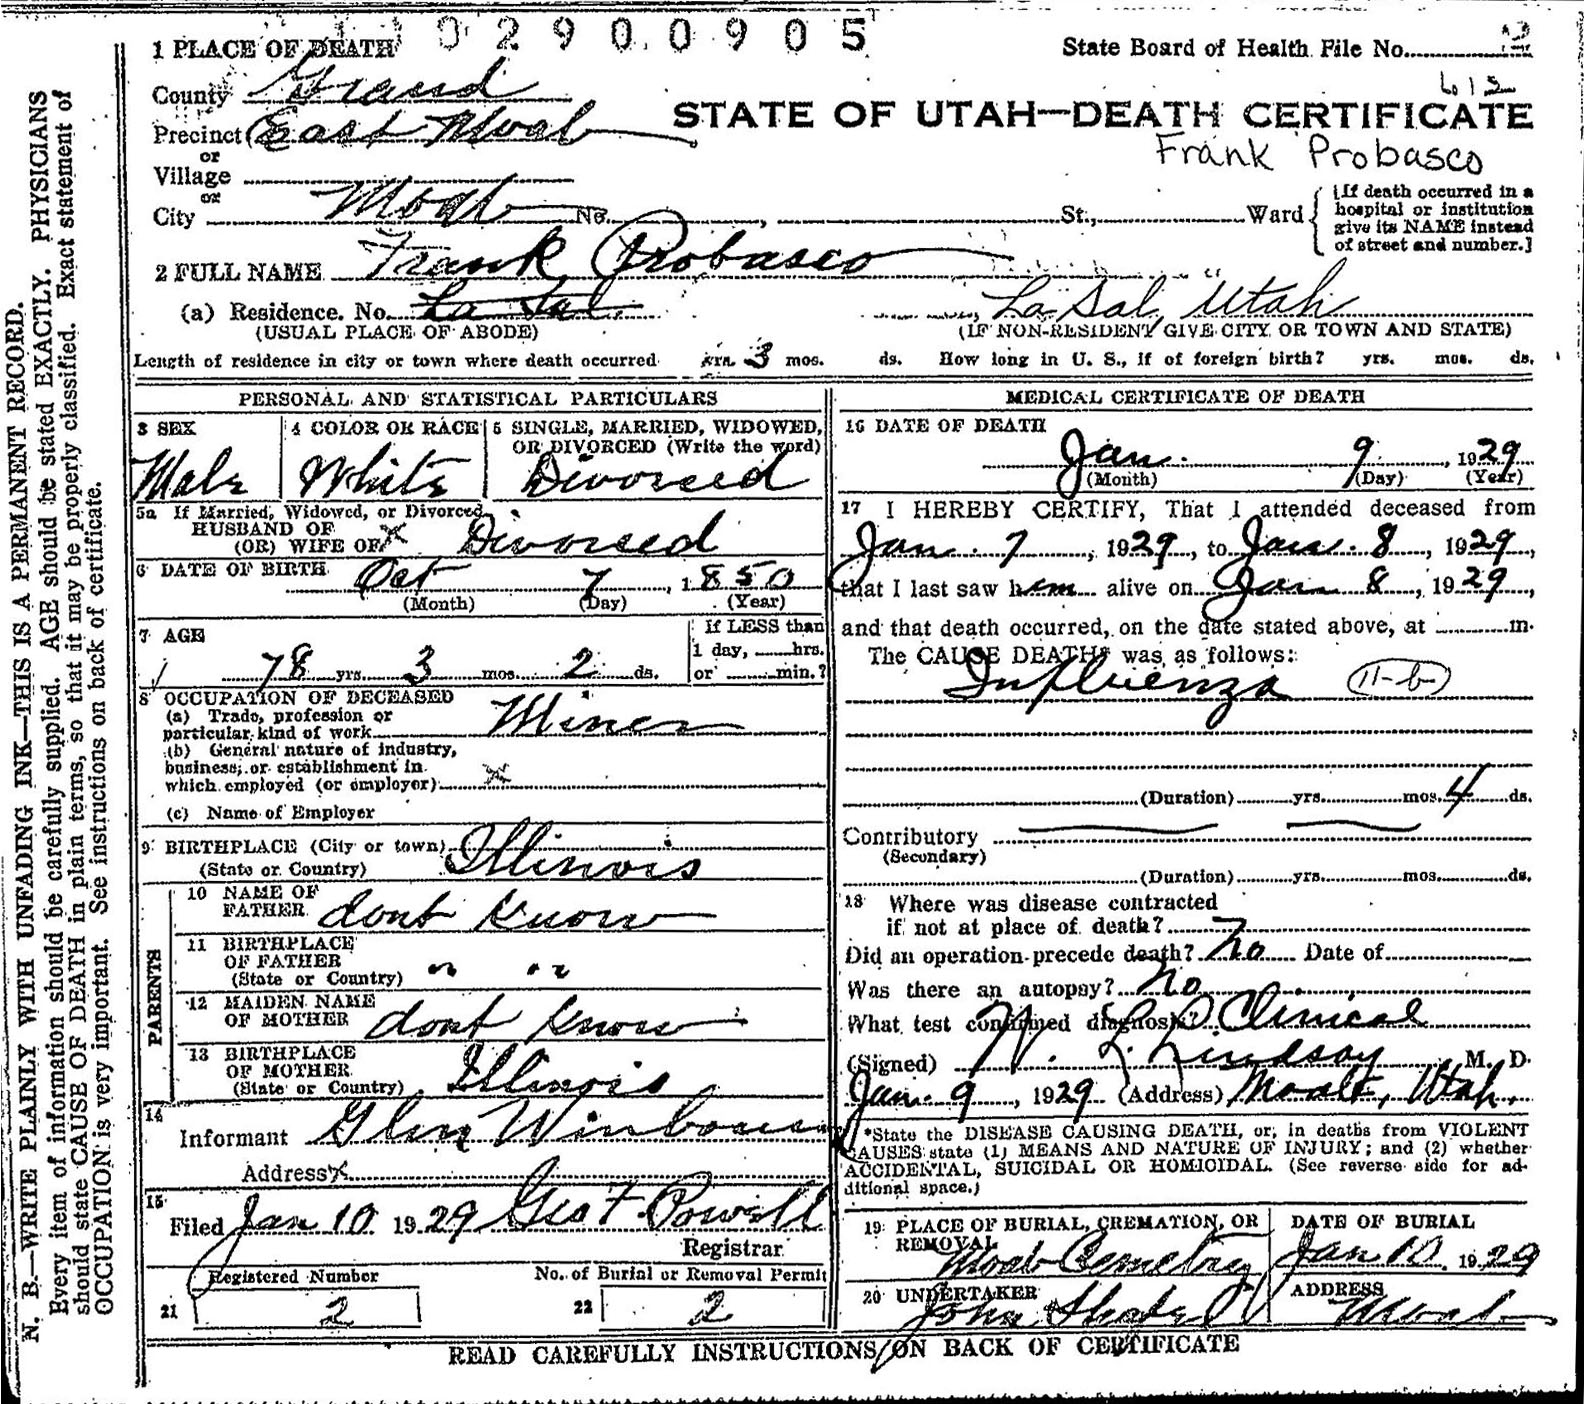 0 2 9 0 0 9 0 5
1 PLACE OF DEATH
State Board of Health File No. 2
612
County Grand
STATE OF UTAH—DEATH CERTIFICATE
Precinct East Moab
Frank Probasco
or
Village
or
City Moab No. , St., Ward
[If death occurred in a
hospital or institution
give its NAME instead
of street and number.]
2 FULL NAME Frank Probasco
(a) Residence. No. La Sal La Sal, Utah
(USUAL PLACE OF ABODE) (IF NON-RESIDENT GIVE CITY OR TOWN AND STATE)
Length of residence in city or town where death occurred yrs. 3 mos. ds. How long in U. S., if of foreign birth? yrs. mos. ds.
PERSONAL AND STATISTICAL PARTICULARS
3 SEX
Male
4 COLOR OR RACE
White
5 SINGLE, MARRIED, WIDOWED,
OR DIVORCED (Write the word)
Divorced
5a If Married, Widowed, or Divorced
HUSBAND OF
(OR) WIFE OF x Divorced
6 DATE OF BIRTH Oct 7, 1850
(Month) (Day) (Year)
7 AGE
78 yrs. 3 mos. 2 ds.
If LESS than
1 day, hrs.
or min.?
8 OCCUPATION OF DECEASED
(a) Trade, profession or
particular kind of work Miner
(b) General nature of industry,
business, or establishment in
which employed (or employer) x
(c) Name of Employer
9 BIRTHPLACE (City or town)
(State or Country) Illinois
PARENTS
10 NAME OF
FATHER dont know
11 BIRTHPLACE
OF FATHER
(State or Country) " "
12 MAIDEN NAME
OF MOTHER dont know
13 BIRTHPLACE
OF MOTHER
(State or Country) Illinois
14
Informant Glen
Address x
15
Filed Jan 10 1929 Geo F. Powell
Registrar
Registered Number
21 2
No. of Burial or Removal Permit
22 2
MEDICAL CERTIFICATE OF DEATH
16 DATE OF DEATH
Jan. 9, 1929
(Month) (Day) (Year)
17 I HEREBY CERTIFY, That I attended deceased from
Jan. 7, 1929, to Jan. 8, 1929,
that I last saw him alive on Jan 8, 1929,
and that death occurred, on the date stated above, at m.
The CAUSE DEATH* was as follows:
Influenza 11-b
(Duration) yrs. mos. 4 ds.
Contributory
(Secondary)
(Duration) yrs. mos. ds.
18 Where was disease contracted
if not at place of death?
Did an operation precede death? No Date of
Was there an autopsy? No
What test confirmed diagnosis? Clinical
(Signed) Lindsay M. D.
Jan. 9, 1929 (Address) Moab, Utah.
*State the DISEASE CAUSING DEATH, or, in deaths from VIOLENT
CAUSES state (1) MEANS AND NATURE OF INJURY; and (2) whether
ACCIDENTAL, SUICIDAL OR HOMICIDAL. (See reverse side for ad-
ditional space.)
19 PLACE OF BURIAL, CREMATION, OR
REMOVAL
Moab Cemetery
DATE OF BURIAL
Jan 10. 1929
20 UNDERTAKER
John
ADDRESS
Moab
READ CAREFULLY INSTRUCTIONS ON BACK OF CERTIFICATE
N. B.—WRITE PLAINLY WITH UNFADING INK—THIS IS A PERMANENT RECORD.
Every item of information should be carefully supplied. AGE should be stated EXACTLY. PHYSICIANS
should state CAUSE OF DEATH in plain terms, so that it may be properly classified. Exact statement of
OCCUPATION is very important. See instructions on back of certificate.